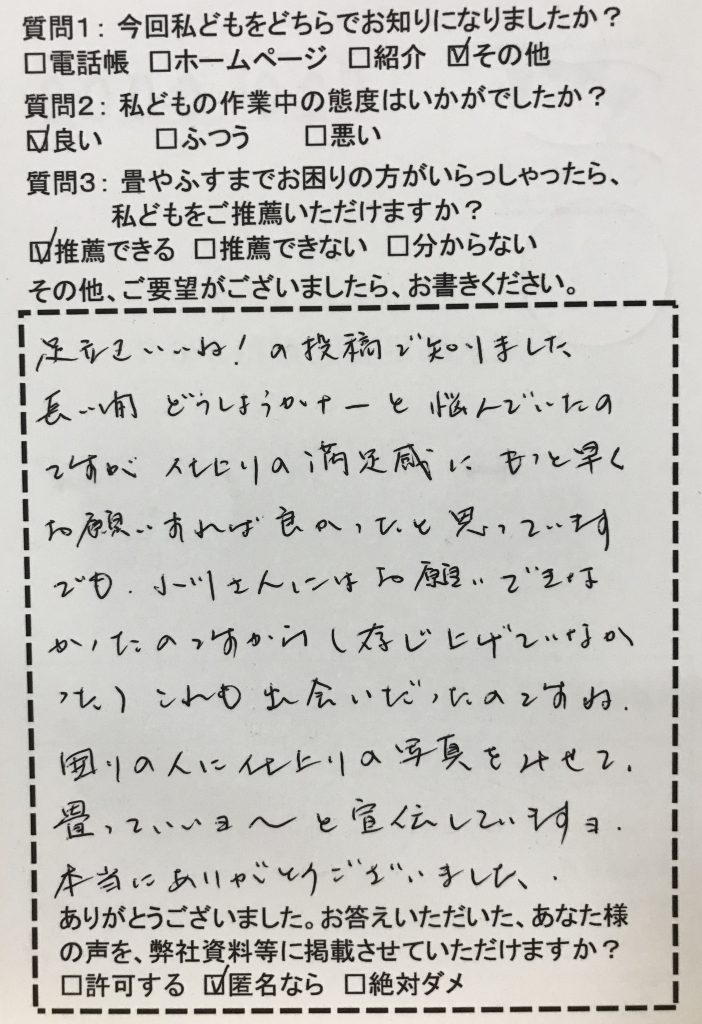 質問1：今回私どもをどちらでお知りになりましたか？
□電話帳 □ホームページ □紹介 ☑その他
質問2：私どもの作業中の態度はいかがでしたか？
☑良い □ふつう □悪い
質問3：畳やふすまでお困りの方がいらっしゃったら、
私どもをご推薦いただけますか？
☑推薦できる □推薦できない □分からない
その他、ご要望がございましたら、お書きください。
足立区いいね！の投稿で知りました
長い間 どうしようかナーと悩んでいたの
ですが 仕上りの満足感に もっと早く
お願いすれば良かったと思っています
でも、小川さんにはお願いできな
かったのですから（存じ上げていなか
った）これも出会いだったのですね.
囲りの人に仕上りの写真をみせて、
畳っていいヨ〜と宣伝していますヨ.
本当にありがとうございました、.
ありがとうございました。お答えいただいた、あなた様
の声を、弊社資料等に掲載させていただけますか？
□許可する ☑匿名なら □絶対ダメ